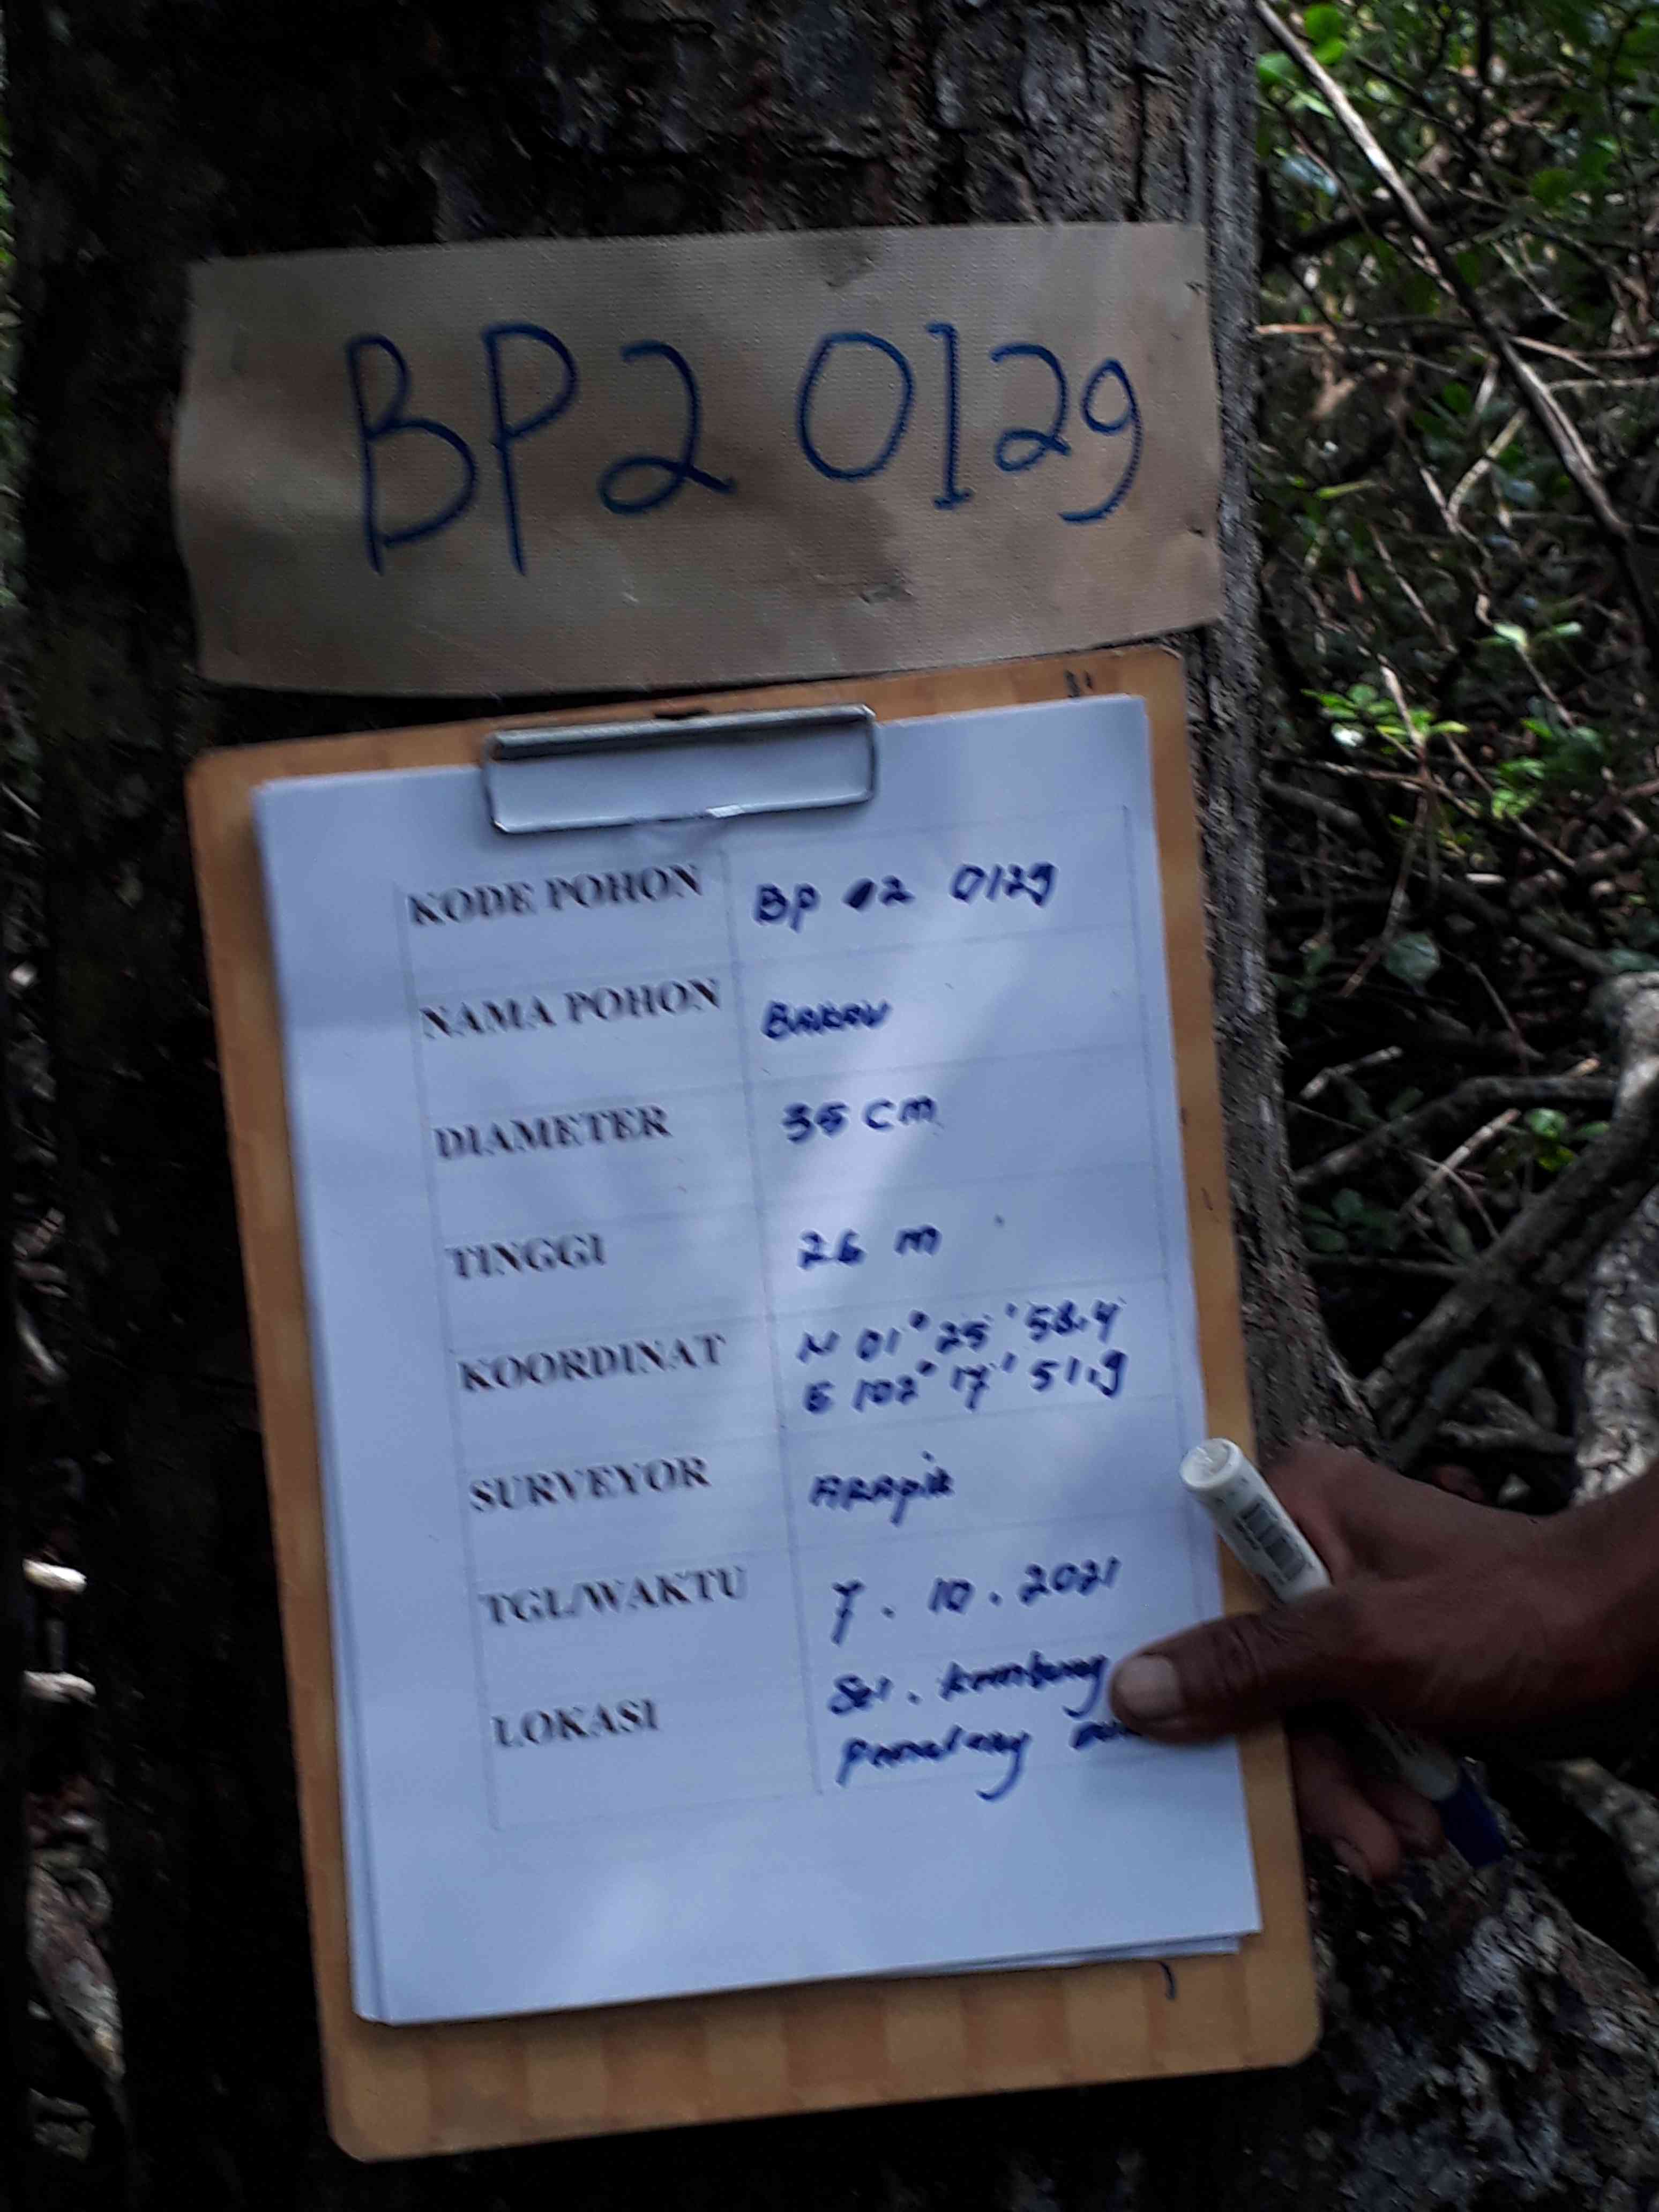 BP2 0129
KODE POHON BP 02 0129
NAMA POHON BAKAU
DIAMETER 35 cm
TINGGI 26 m
KOORDINAT N 01° 25' 58.4
E 102° 17' 51.9
SURVEYOR
TGL/WAKTU 7. 10. 2021
LOKASI Sei. Kembung